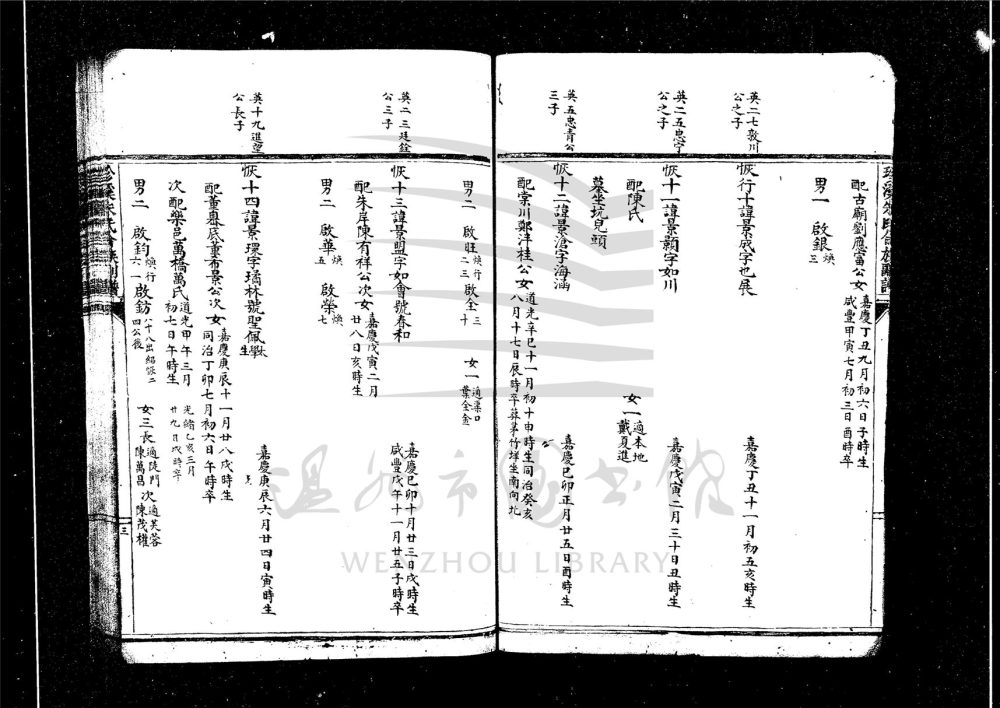 配古廟劉應富公女
嘉慶丁丑九月初六日子時生
咸豐甲寅七月初三日酉時卒
男一 啟銀煥三
英二七敦川公之子
恢行十諱景成字也展
嘉慶丁丑十一月初五亥時生
英二五忠宁公之子
恢十一諱景頛字如川
嘉慶戊寅二月三十日丑時生
配陳氏
墓坐坑兒頭
女一適本地戴夏進
英五忠青公三子
恢十二諱景滄字海涵
嘉慶己卯正月廿五日酉時生
配棠川鄭洋桂公女
道光辛巳十一月初十申時生同治癸亥
八月十七日辰時卒葬茅竹垟坐南向北
男二 啟旺煥行二三 啟全三十
女一適渠口葉全金
英二三廷銓公三子
恢十三諱景盟字如會號春和
嘉慶己卯十月廿三日戌時生
咸豐戊午十一月廿五子時卒
配朱岸陳有祥公次女
嘉慶戊寅二月廿八日亥時生
男二 啟華煥五 啟榮煥七
英十九進望公長子
恢十四諱景環字璚林號聖佩大學生
嘉慶庚辰六月廿四日寅時生
配董嶴底董布景公次女
嘉慶庚辰十一月廿八戌時生
同治丁卯七月初六日午時卒
次配樂邑萬橋萬氏
道光甲午三月初七日午時生
光緒乙亥三月廿九日戌時卒
男二 啟鈞煥行六一 啟鈁八十八出紹恢二四公後
女三長適陡門陳萬昌 次適芙蓉陳茂權
三
溫州市圖書館
WENZHOU LIBRARY